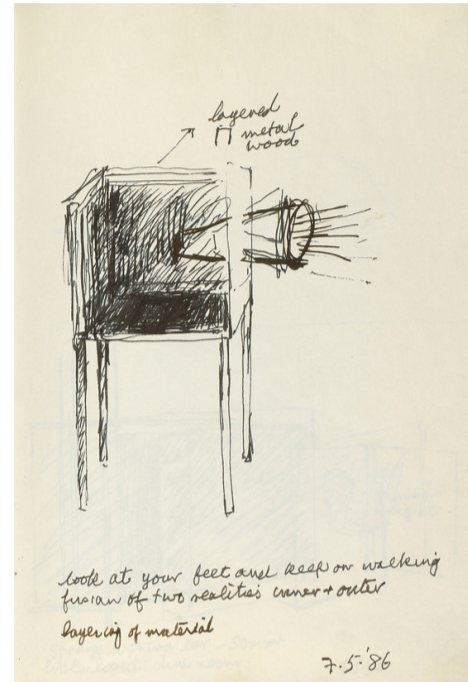 layered
metal
wood
look at your feet and keep on walking
fusion of two realities inner + outer
layering of material
7.5.'86